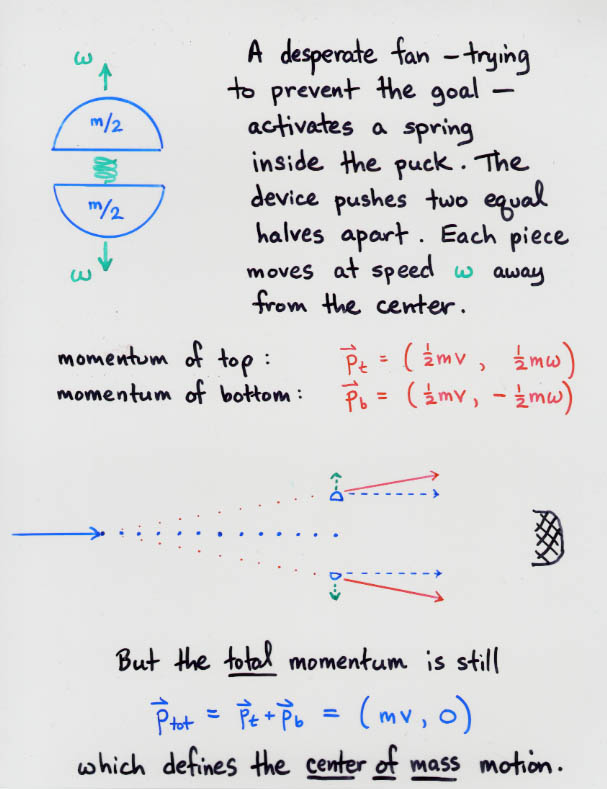 ω
A desperate fan – trying
to prevent the goal –
activates a spring
inside the puck. The
device pushes two equal
halves apart. Each piece
moves at speed ω away
from the center.
m/2
m/2
ω
momentum of top: p⃗t = (½mv, ½mω)
momentum of bottom: p⃗b = (½mv, -½mω)
But the total momentum is still
p⃗tot = p⃗t + p⃗b = (mv, 0)
which defines the center of mass motion.